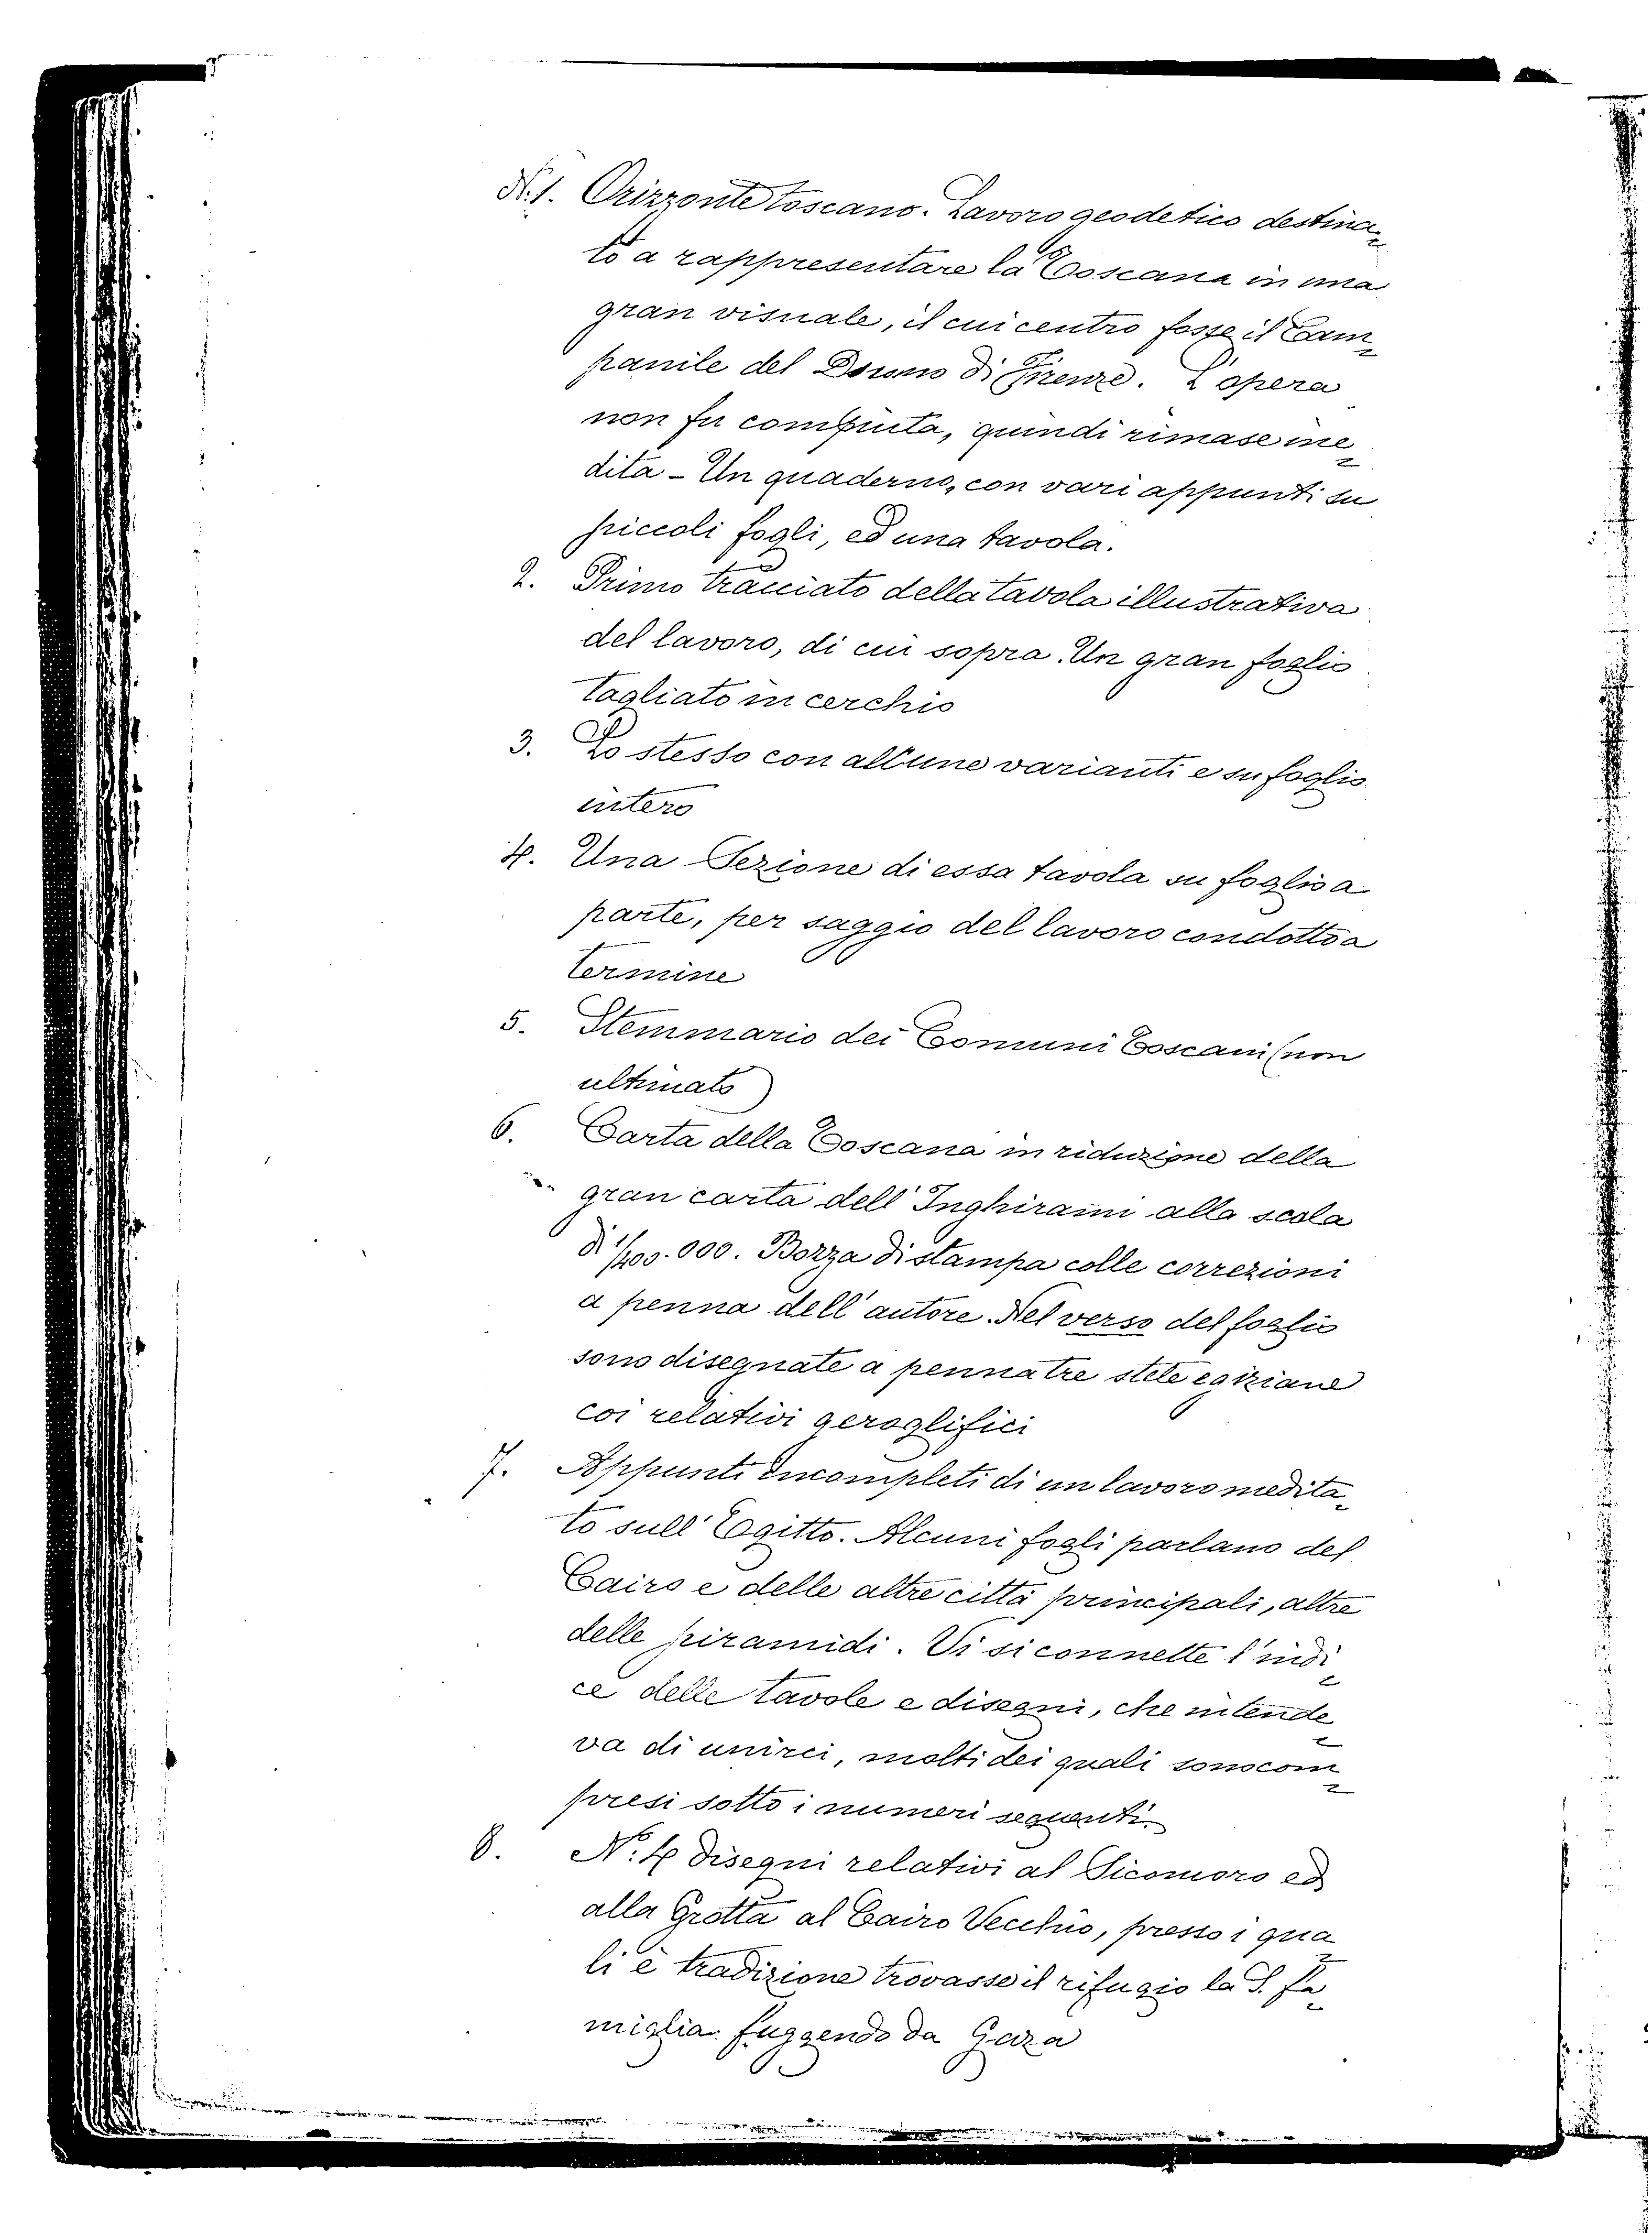 N.1. Orizzonte toscano. Lavoro geodetico destina=
to a rappresentare la Toscana in una
gran visuale, il cui centro fosse il Cam=
panile del Duomo di Firenze. L'opera
non fu compiuta, quindi rimase ine=
dita - Un quaderno, con vari appunti su
piccoli fogli, ed una tavola.
2. Primo tracciato della tavola illustrativa
del lavoro, di cui sopra. Un gran foglio
tagliato in cerchio
3. Lo stesso con alcune varianti e su foglio
intero
4. Una Sezione di essa tavola su foglio a
parte, per saggio del lavoro condotto a
termine
5. Stemmario dei Comuni Toscani (non
ultimato)
6. Carta della Toscana in riduzione della
gran carta dell'Inghirami alla scala
di 1/400.000. Bozza di stampa colle correzioni
a penna dell'autore. Nel verso del foglio
sono disegnate a penna tre stele egiziane
coi relativi geroglifici
7. Appunti incompleti di un lavoro medita=
to sull'Egitto. Alcuni fogli parlano del
Cairo e delle altre città principali, altre
delle piramidi. Vi si connette l'indi=
ce delle tavole e disegni, che intende=
va di unirci, molti dei quali sono com=
presi sotto i numeri seguenti.
8. N.: 4 disegni relativi al Sicomoro ed
alla Grotta al Cairo Vecchio, presso i qua=
li è tradizione trovasse il rifugio la S. Fa=
miglia fuggendo da Gaza